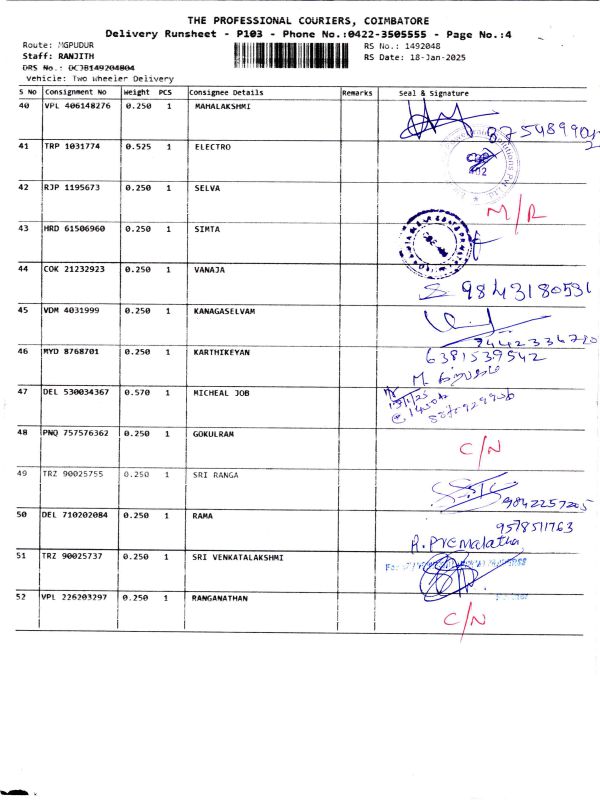 THE PROFESSIONAL COURIERS, COIMBATORE
Delivery Runsheet - P103 - Phone No.:0422-3505555 - Page No.:4
Route: MGPUDUR
RS No.: 1492048
Staff: RANJITH
RS Date: 18-Jan-2025
DRS No.: OCJB149204804
Vehicle: Two Wheeler Delivery
S No Consignment No Weight PCS Consignee Details Remarks Seal & Signature
40 VPL 406148276 0.250 1 MAHALAKSHMI
41 TRP 1031774 0.525 1 ELECTRO
402
42 RJP 1195673 0.250 1 SELVA M/R
43 HRD 61506960 0.250 1 SIMTA
44 COK 21232923 0.250 1 VANAJA 9843180531
45 VDM 4031999 0.250 1 KANAGASELVAM
46 MYD 8768701 0.250 1 KARTHIKEYAN 6381539542
47 DEL 530034367 0.570 1 MICHEAL JOB
48 PNQ 757576362 0.250 1 GOKULRAM C/N
49 TRZ 90025755 0.250 1 SRI RANGA 9842257205
50 DEL 710202084 0.250 1 RAMA 9578511763
R. Premalatha
51 TRZ 90025737 0.250 1 SRI VENKATALAKSHMI
For
52 VPL 226203297 0.250 1 RANGANATHAN C/N